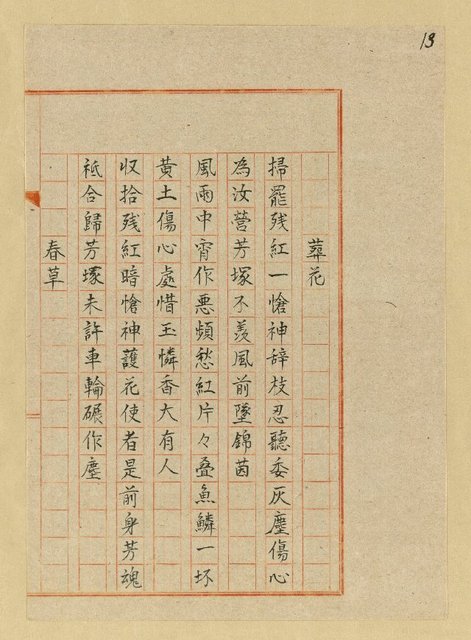 13
葬花
掃罷残紅一愴神辞枝忍聽委灰塵傷心
為汝營芳塚不羨風前墜錦茵
風雨中宵作悪頻愁紅片々叠魚鱗一坏
黄土傷心處惜玉憐香大有人
収拾残紅暗愴神護花使者是前身芳魂
袛合歸芳塚未許車輪碾作塵
春草